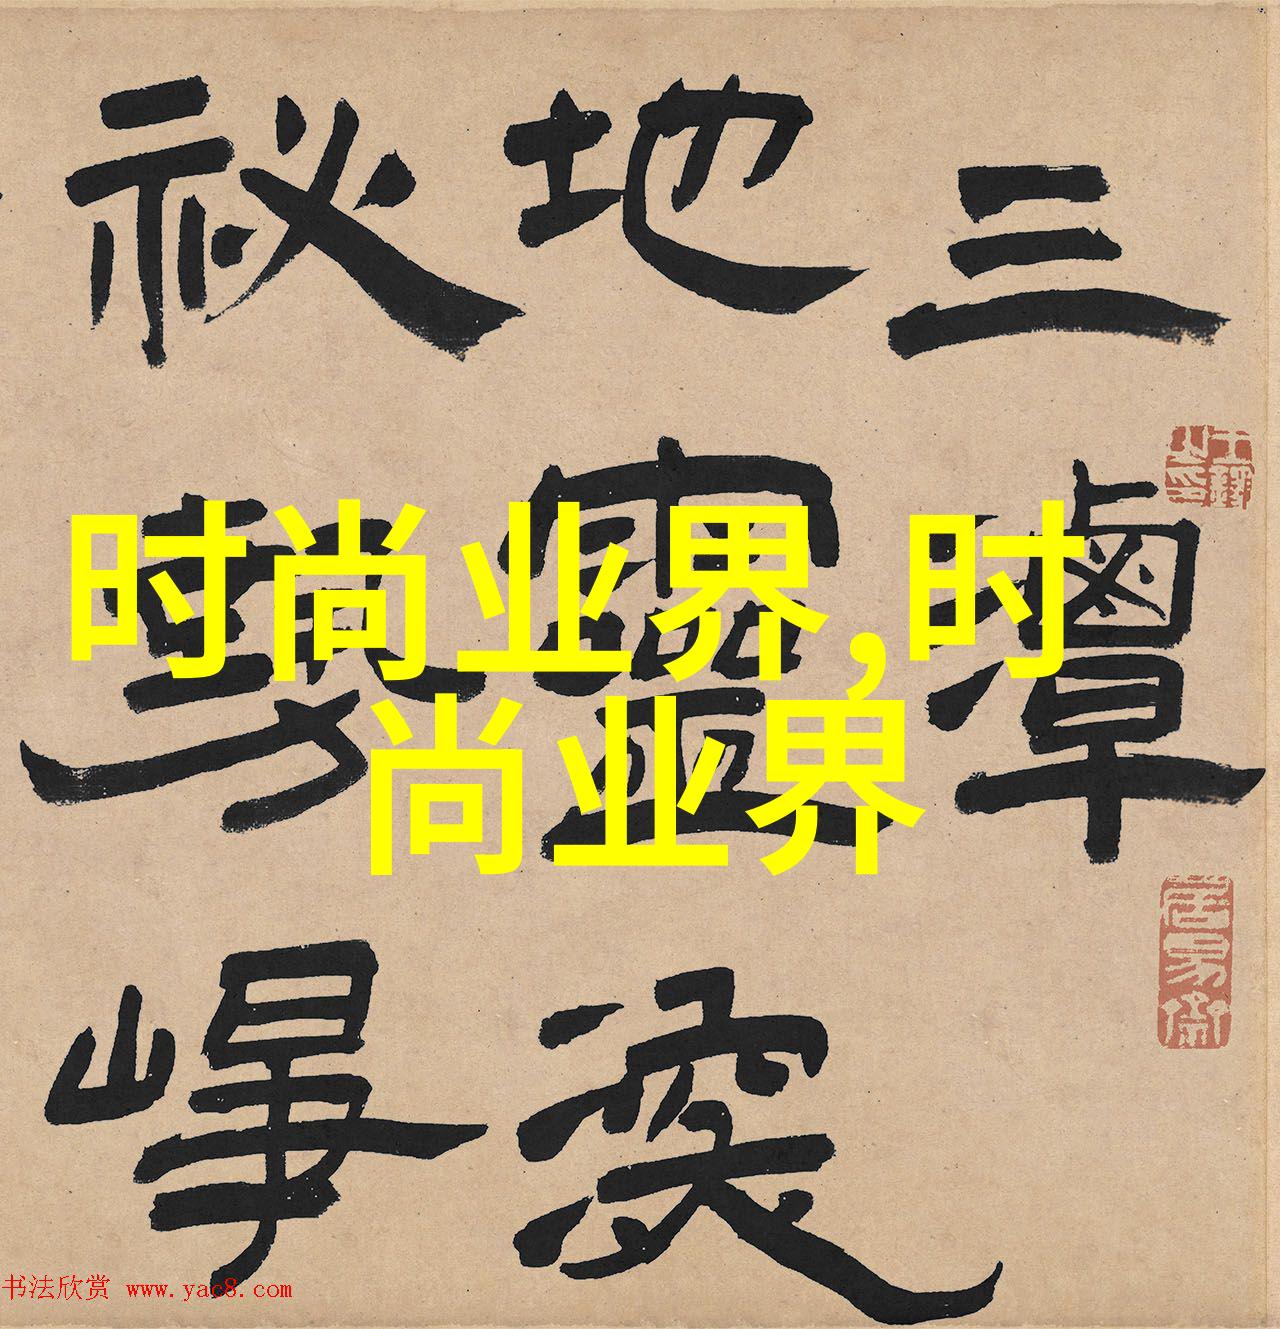 三潭
地靈
祕勢崢
时尚业界,时
尚业界
书法欣赏 www.yac8.com